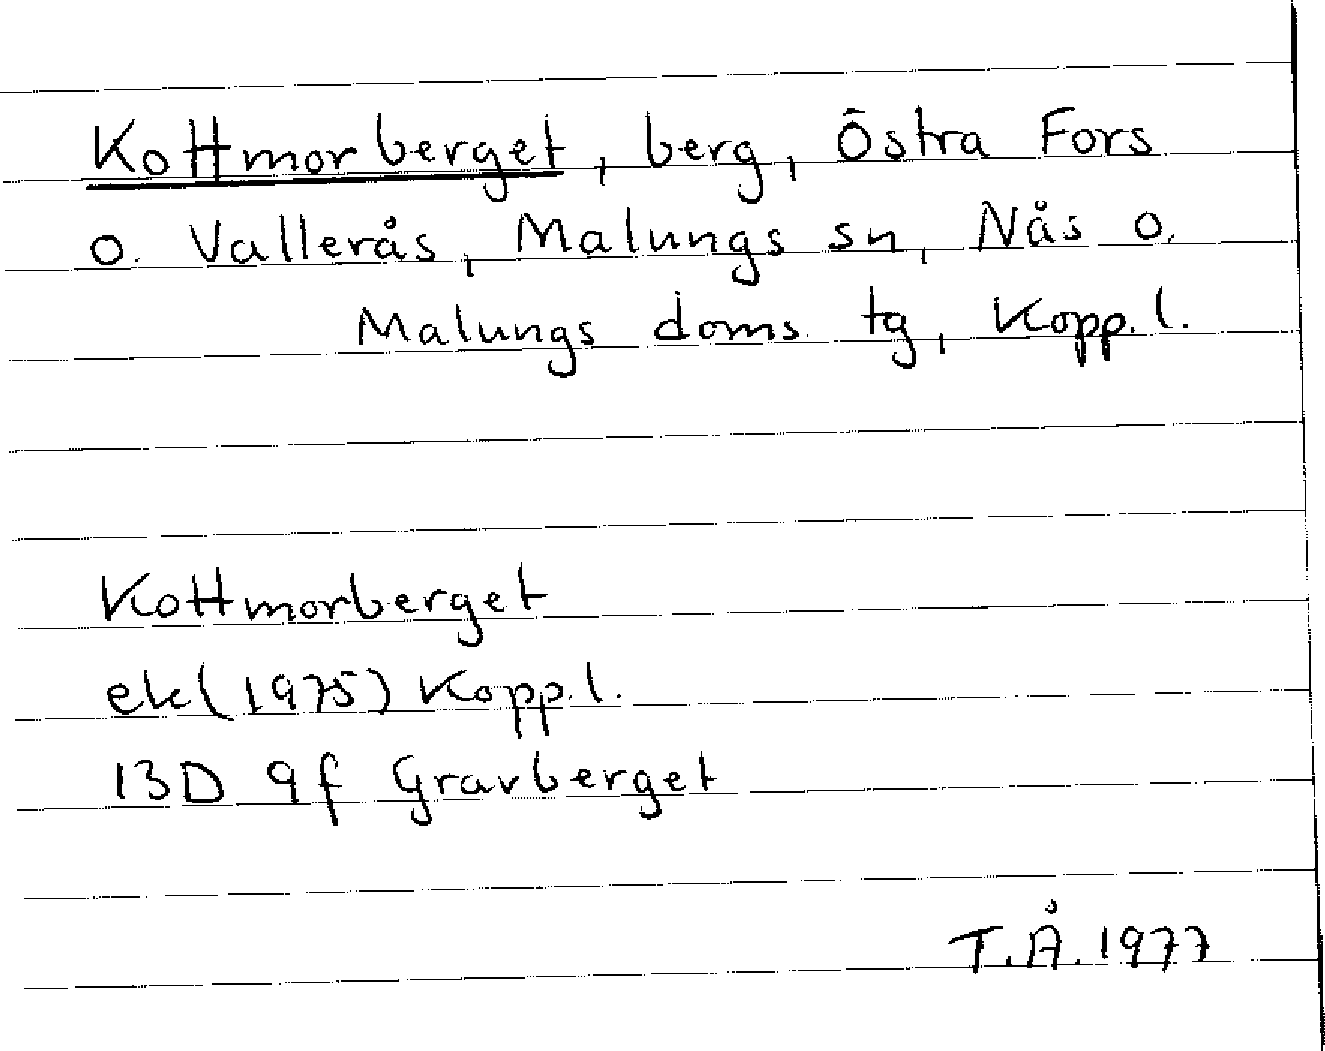 Kottmorberget, berg, Östra Fors
o. Vallerås, Malungs sn, Nås o.
Malungs doms. tg, Kopp. l.
Kottmorberget
ek (1975) Kopp. l.
13D 9f Gravberget
T.Å. 1977